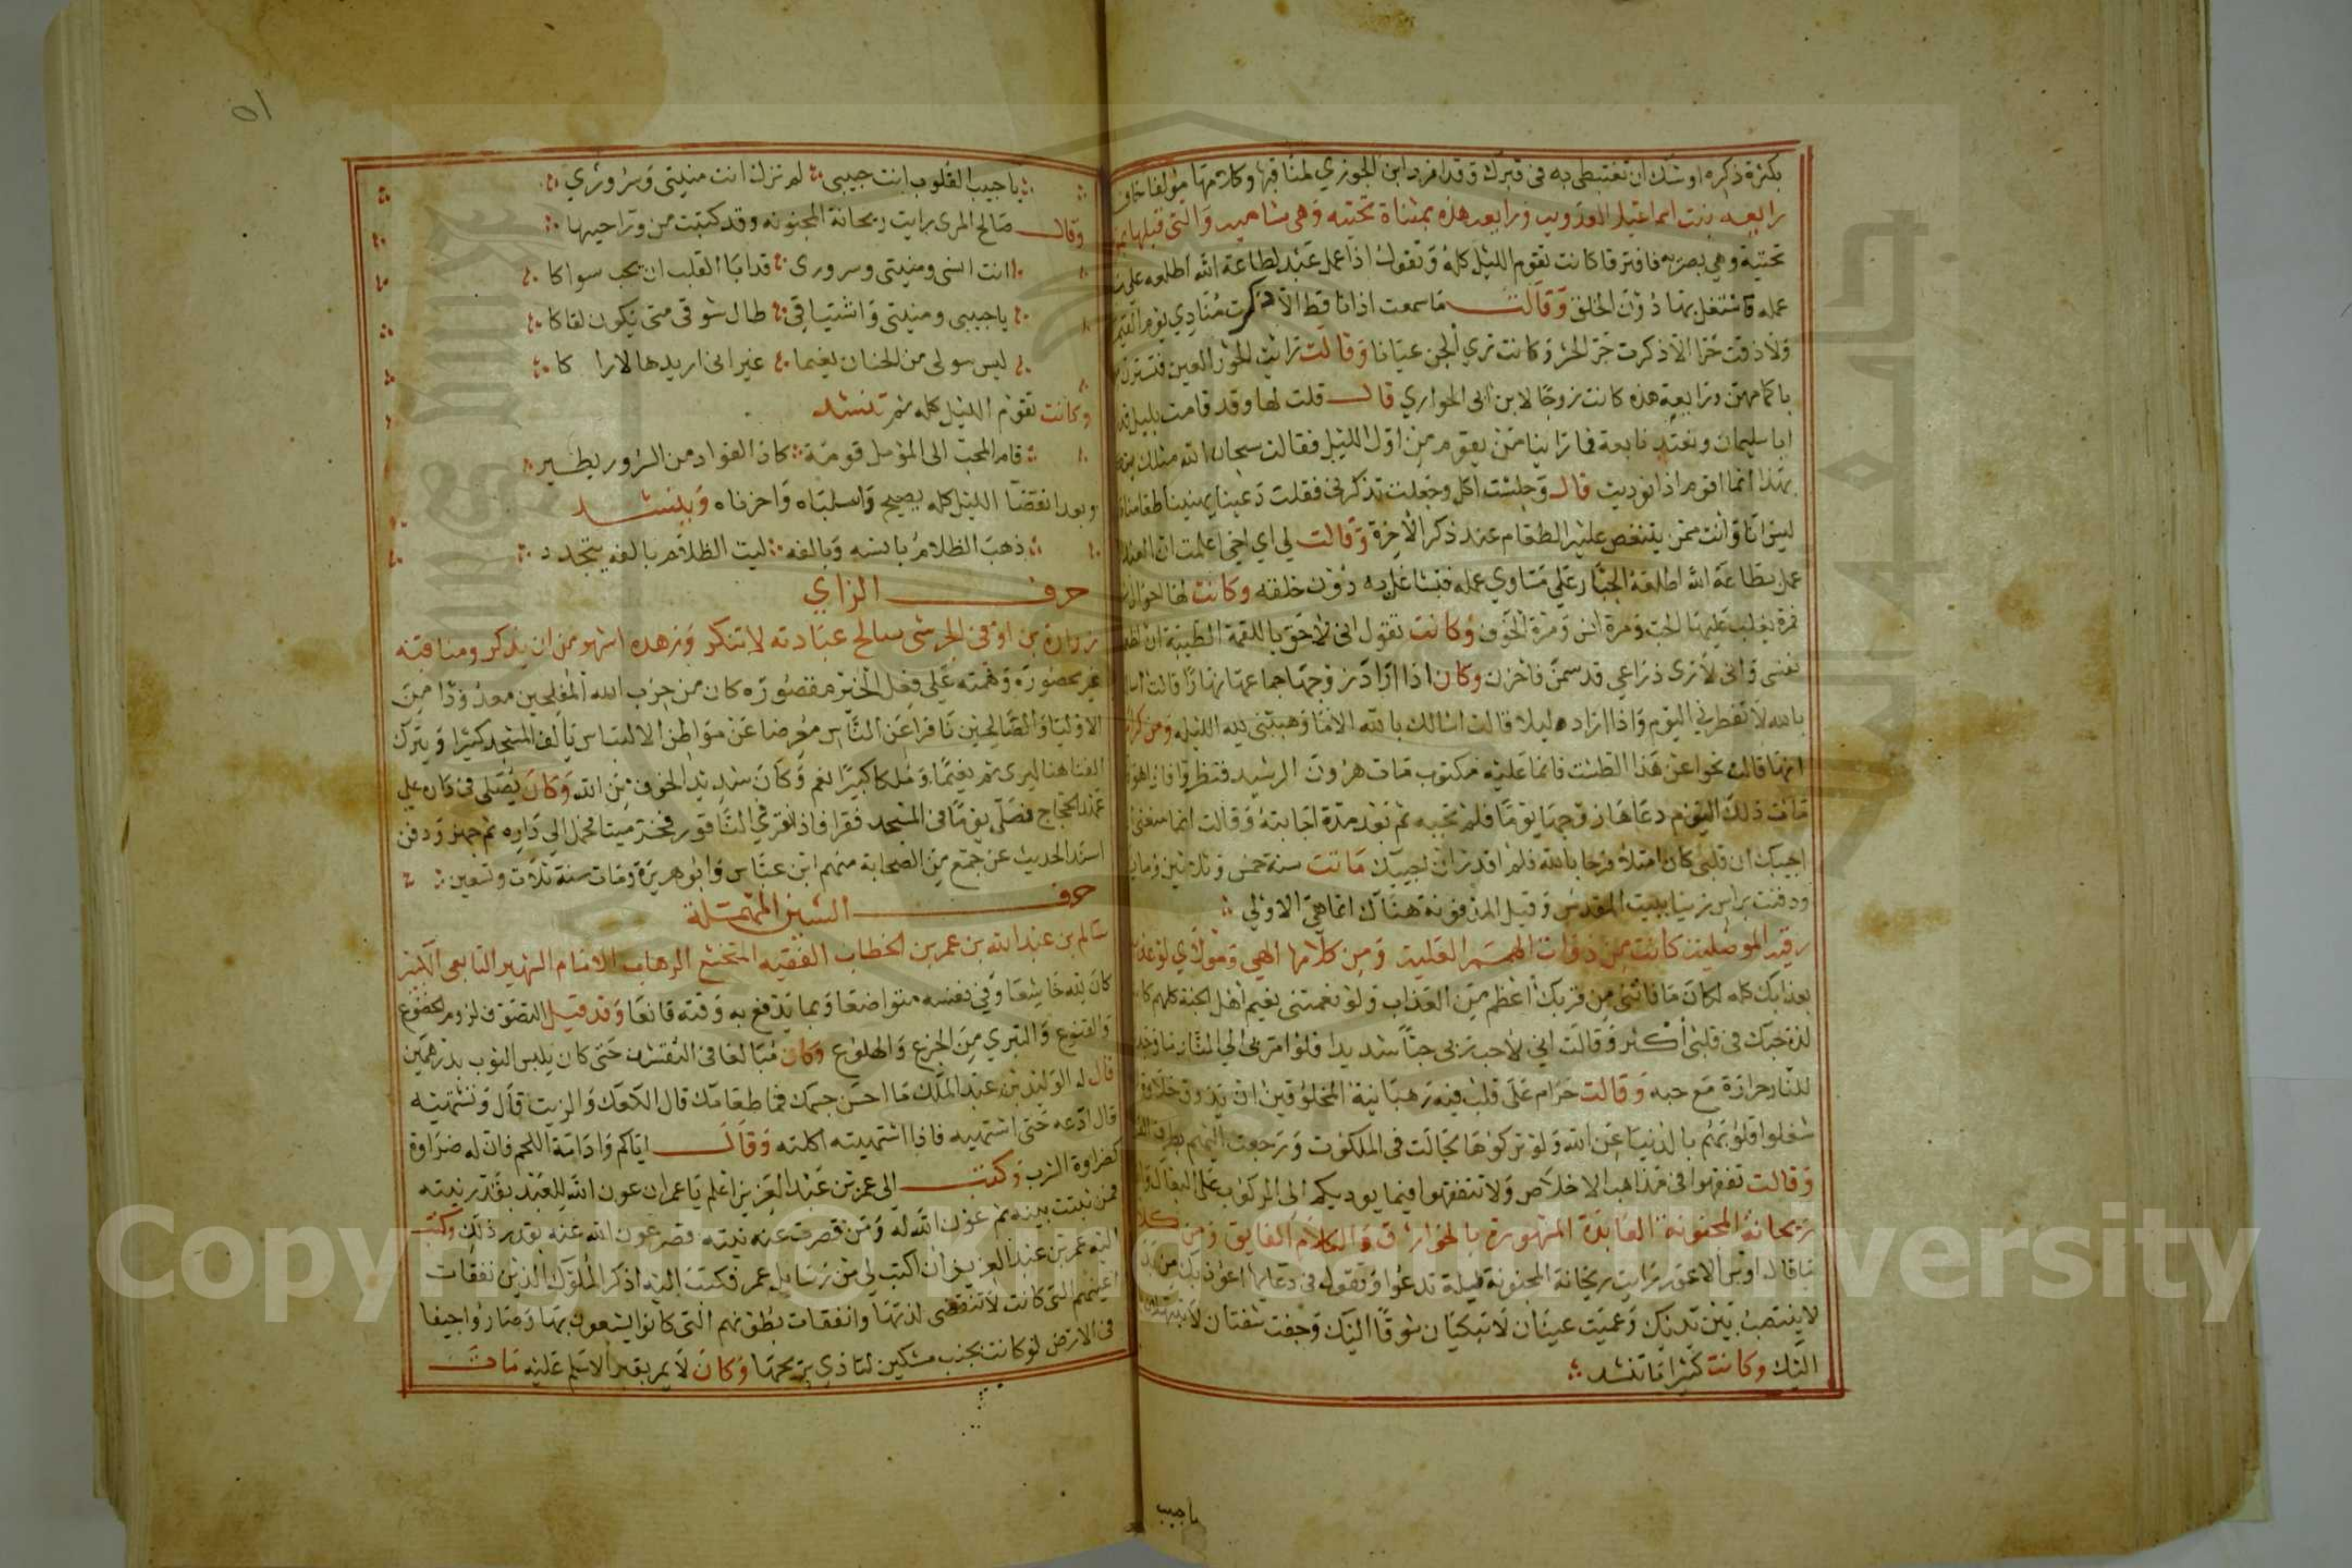 بكثرة ذكره اوشك ان تغتبطي به في قبرك وقد افرد ابن الجوزي لمناقبها وكلامها مؤلفا
رابعه بنت اسماعيل العدويه ورابعه هذه بمثناة تحتيه وهي شاميه والتي قبلها
تحتية وهي بصريه فافترقا كانت تقوم الليل كله وتقول اذا عمل عبد بطاعة الله اطلعه على
عمله فاشتغل بها دون الخلق وقالت ما سمعت اذانا قط الا ذكرت منادي يوم القيمة
ولا ذقت حرا الا ذكرت حر الحشر وكانت تري الجن عيانا وقالت رايت الحور العين
باكمامهن ورابعة هذه كانت زوجا لابن ابي الحواري قال قلت لها وقد قامت بليل
ابا سليمان فما راينا من يقوم من اول الليل فقالت سبحان الله مثلك
بهذا انما اقوم اذا نوديت قال وجلست اكل وجعلت تذكرني فقلت دعينا يهنينا طعامنا
ليس انا وانت ممن يتنغص عليه الطعام عند ذكر الاخرة وقالت لي اي اخي اعلمت ان العبد
عمل بطاعة الله اطلعه الجبار على مساوي عمله فتشاغل به دون خلقه وكانت لها احوال
فمرة يغلب عليها الحب ومرة انس ومرة الخوف وكانت تقول اني لاحق باللقمة الطيبة ان
نفسي واني لاري ذراعي قد سمن فاحزن وكان اذا اراد زوجها جماعها نهارا قالت
بالله لا تفطرني اليوم واذا اراده ليلا قالت اسالك بالله الا ما وهبتني لله الليله ومن
انها قالت نحوا عن هذا الطست فانما عليه مكتوب مات هرون الرشيد فنظروا فاذا هو
مات ذلك اليوم دعاها زوجها يوما فلم تجبه ثم بعد مدة اجابته وقالت انما منعني
اجيبك ان قلبي كان امتلا فرحا بالله فلم اقدر ان اجيبك ماتت سنة خمس وثلاثين
ودفنت براس زيتا ببيت المقدس وقيل المدفونة هناك انما هي الاولي
رقيه الموصليه كانت من ذوات الهمم العليه ومن كلامها الهي ومولاي لو
بعذابك كله لكان ما فاتني من قربك اعظم من العذاب ولو نعمتني بنعيم اهل الجنة كلهم
لذة حبك في قلبي اكثر وقالت اني لاحب ربي حبا شديدا فلو امر بي الي النار
للنار حرارة مع حبه وقالت حرام على قلب فيه رهبانية المخلوقين ان يذوق حلاوة
شغلوا قلوبهم بالدنيا عن الله ولو تركوها لجالت في الملكوت ورجعت اليهم بطرف
وقالت تفقهوا في مذاهب الاخلاص ولا تتفقهوا فيما يوديكم الى الركوب على البغال
ريحانة المجنونة العابدة المشهورة بالخوارق والكلام الفايق ومن كلا
قال اويس الاعور رايت ريحانة المجنونة ليلة تدعو وتقول في دعايها اعوذ بك من
لا ينتصب بين يديك وعميت عينان لا تبكيان شوقا اليك وجفت شفتان لا
اليك وكانت كثيرا ما تنشد
يا حبيب
٥١
يا حبيب القلوب انت حبيبي لم تزل انت منيتي وسروري
وقال صالح المري رايت ريحانة المجنونه وقد كتبت من ورا جيبها
انت انسي ومنيتي وسروري قد ابا القلب ان يحب سواكا
يا حبيبي ومنيتي واشتياقي طال شوقي متى يكون لقاكا
ليس سولي من الجنان نعيما غير اني اريدها لاراكا
وكانت تقوم الليل كله ثم تنشد
قام المحب الى المؤمل قومة كاد الفواد من السرور يطير
وبعد انقضا الليل كله يصيح واسلباه واحزناه وينشد
ذهب الظلام بانسه وبالفه ليت الظلام بالفه يتجدد
حرف الزاي
زرارة بن اوفي الجرشي صالح عبادته لا تنكر وزهده اشهر من ان يذكر ومناقبه
غير محصوره وهمته على فعل الخير مقصوره كان من حزب الله المفلحين معدودا من
الاوليا والصالحين نافرا عن الناس معرضا عن مواطن الالتباس يالف المسجد كثيرا ويترك
الفنا هنا ليرى ثم نعيما وملكا كبيرا نعم وكان شديد الخوف من الله وكان يصلي في داره على
عهد الحجاج فصلى يوما في المسجد فقرا فاذا نقر في الناقور فخر ميتا فحمل الي داره ثم جهز ودفن
اسند الحديث عن جمع من الصحابة منهم ابن عباس وابو هريرة ومات سنة ثلاث وتسعين
حرف السين المهملة
سالم بن عبد الله بن عمر بن الخطاب الفقيه المتخشع الرهاب الامام الشهير التابعي الكبير
كان لله خاشعا وفي نفسه متواضعا وبما يدفع به وقته قانعا وقد قيل التصوف لزوم الخضوع
والقنوع والتبري من الجزع والهلوع وكان مبالغا في التقشف حتى كان يلبس الثوب بدرهمين
قال له الوليد بن عبد الملك ما احسن جسمك فما طعامك قال الكعك والزيت قال وتشتهيه
قال ادعه حتى اشتهيه فاذا اشتهيته اكلته وقال اياكم وادامة اللحم فان له ضراوة
كضراوة الشرب وكتب الى عمر بن عبد العزيز اعلم يا عمر ان عون الله للعبد بقدر نيته
فمن ثبتت نيته تم عون الله له ومن قصرت عنه نيته قصر عون الله عنه بقدر ذلك وكتب
اليه عمر بن عبد العزيز ان اكتب لي من رسايل عمر فكتب اليه اذكر الملوك الذين تفقات
اعينهم التي كانت لا تنقضي لذتها وانفقات بطونهم التي كانوا لا يشبعون بها وصاروا جيفا
في الارض لو كانت بجنب مسكين لتاذي بريحها وكان لا يمر بقبر الا سلم عليه مات
Copyright © King Saud University